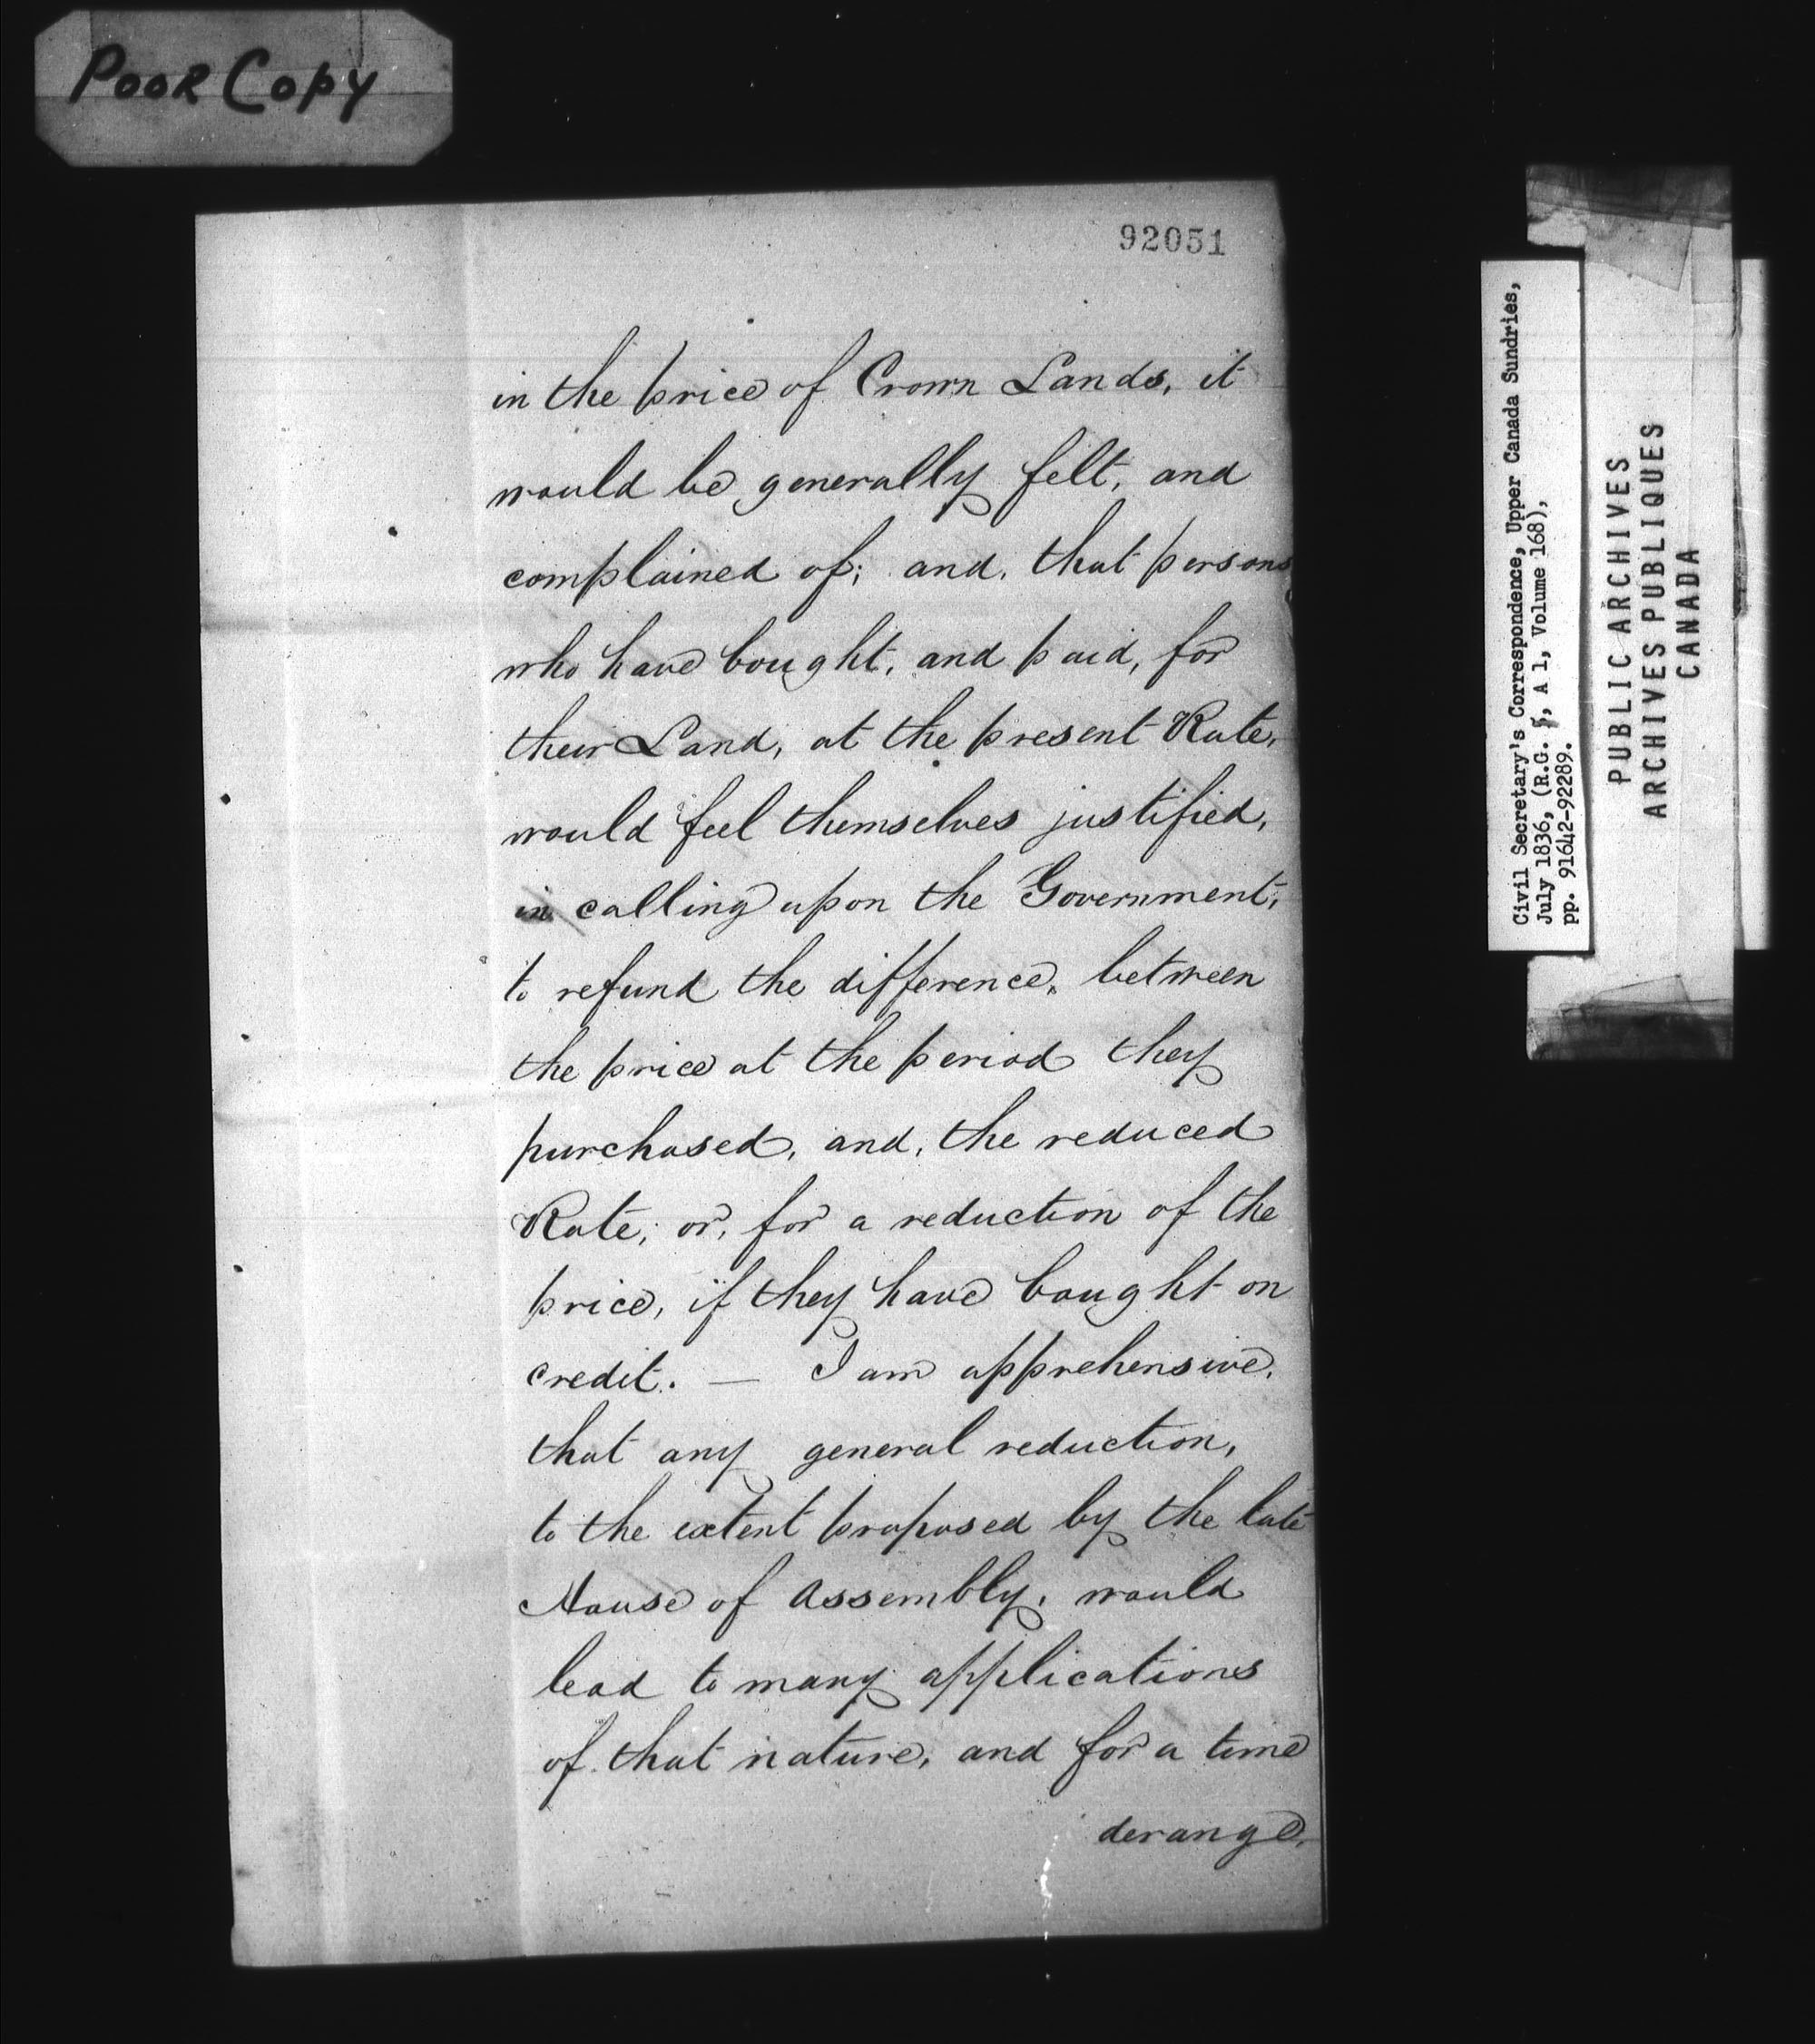 Poor Copy
92051
in the price of Crown Lands, it
would be generally felt, and
complained of; and, that persons
who have bought, and paid, for
their Land, at the present Rate,
would feel themselves justified,
in calling upon the Government,
to refund the difference, between
the price at the period they
purchased, and, the reduced
Rate; or, for a reduction of the
price, if they have bought on
credit. — I am apprehensive,
that any general reduction,
to the extent proposed by the late
House of Assembly, would
lead to many applications
of that nature, and for a time
derange,
Civil Secretary's Correspondence, Upper Canada Sundries,
July 1836, (R.G. 5, A 1, Volume 168),
pp. 91642-92289.
PUBLIC ARCHIVES
ARCHIVES PUBLIQUES
CANADA